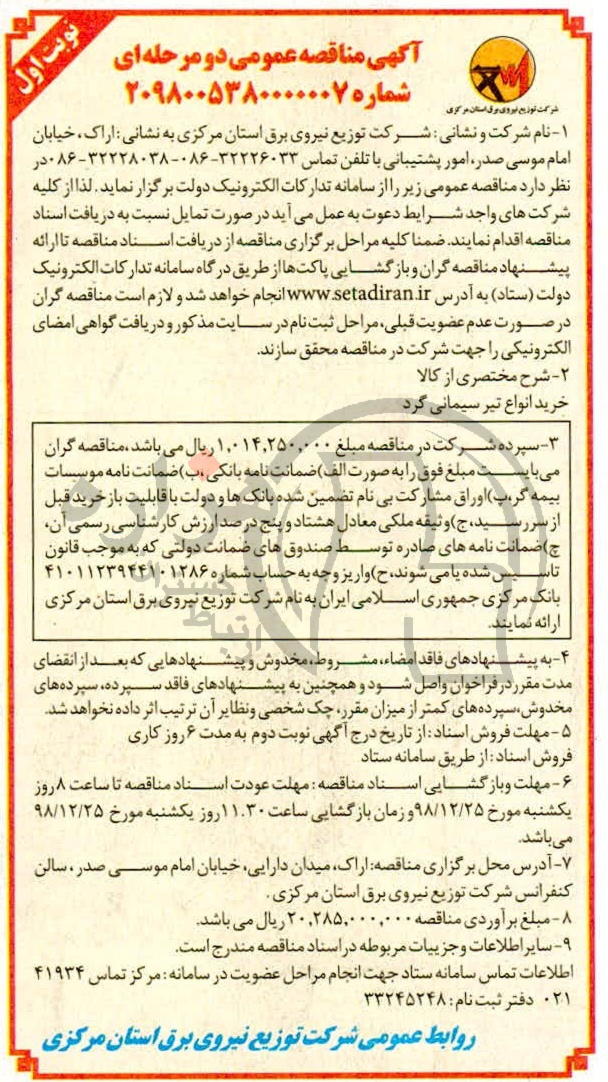 نوبت اول
شرکت توزیع نیروی برق استان مرکزی
آگهی مناقصه عمومی دو مرحله‌ای
شماره ۲۰۹۸۰۰۵۳۸۰۰۰۰۰۰۷
۱-نام شرکت و نشانی: شرکت توزیع نیروی برق استان مرکزی به نشانی: اراک، خیابان
امام موسی صدر، امور پشتیبانی با تلفن تماس ۳۲۲۲۶۰۳۳-۰۸۶-۳۲۲۲۸۰۳۸-۰۸۶در
نظر دارد مناقصه عمومی زیر را از سامانه تدارکات الکترونیک دولت برگزار نماید. لذا از کلیه
شرکت های واجد شرایط دعوت به عمل می آید در صورت تمایل نسبت به دریافت اسناد
مناقصه اقدام نمایند. ضمنا کلیه مراحل برگزاری مناقصه از دریافت اسناد مناقصه تا ارائه
پیشنهاد مناقصه گران و بازگشایی پاکت‌ها از طریق درگاه سامانه تدارکات الکترونیک
دولت (ستاد) به آدرس www.setadiran.ir انجام خواهد شد و لازم است مناقصه گران
در صورت عدم عضویت قبلی، مراحل ثبت نام در سایت مذکور و دریافت گواهی امضای
الکترونیکی را جهت شرکت در مناقصه محقق سازند.
۲-شرح مختصری از کالا
خرید انواع تیر سیمانی گرد
۳-سپرده شرکت در مناقصه مبلغ ۱,۰۱۴,۲۵۰,۰۰۰ ریال می باشد، مناقصه گران
می بایست مبلغ فوق را به صورت الف)ضمانت نامه بانکی ،ب)ضمانت نامه موسسات
بیمه گر،پ)اوراق مشارکت بی نام تضمین شده بانک ها و دولت با قابلیت باز خرید قبل
از سررسید، ج)وثیقه ملکی معادل هشتاد و پنج درصد ارزش کارشناسی رسمی آن،
چ)ضمانت نامه های صادره توسط صندوق های ضمانت دولتی که به موجب قانون
تاسیس شده یا می شوند، ح)واریز وجه به حساب شماره ۴۱۰۱۱۲۳۹۴۴۱۰۱۲۸۶
بانک مرکزی جمهوری اسلامی ایران به نام شرکت توزیع نیروی برق استان مرکزی
ارائه نمایند.
۴-به پیشنهادهای فاقد امضاء، مشروط، مخدوش و پیشنهادهایی که بعد از انقضای
مدت مقرر در فراخوان واصل شود و همچنین به پیشنهادهای فاقد سپرده، سپرده‌های
مخدوش، سپرده‌های کمتر از میزان مقرر، چک شخصی ونظایر آن ترتیب اثر داده نخواهد شد.
۵-مهلت فروش اسناد: از تاریخ درج آگهی نوبت دوم به مدت ۶ روز کاری
فروش اسناد: از طریق سامانه ستاد
۶-مهلت وبازگشایی اسناد مناقصه: مهلت عودت اسناد مناقصه تا ساعت ۸ روز
یکشنبه مورخ ۹۸/۱۲/۲۵ و زمان بازگشایی ساعت ۱۱.۳۰ روز یکشنبه مورخ ۹۸/۱۲/۲۵
می‌باشد.
۷-آدرس محل برگزاری مناقصه: اراک، میدان دارایی، خیابان امام موسی صدر، سالن
کنفرانس شرکت توزیع نیروی برق استان مرکزی.
۸-مبلغ برآوردی مناقصه ۲۰,۲۸۵,۰۰۰,۰۰۰ ریال می باشد.
۹-سایر اطلاعات و جزییات مربوطه در اسناد مناقصه مندرج است.
اطلاعات تماس سامانه ستاد جهت انجام مراحل عضویت در سامانه: مرکز تماس ۴۱۹۳۴
۰۲۱ دفتر ثبت نام: ۳۳۲۴۵۲۴۸
روابط عمومی شرکت توزیع نیروی برق استان مرکزی